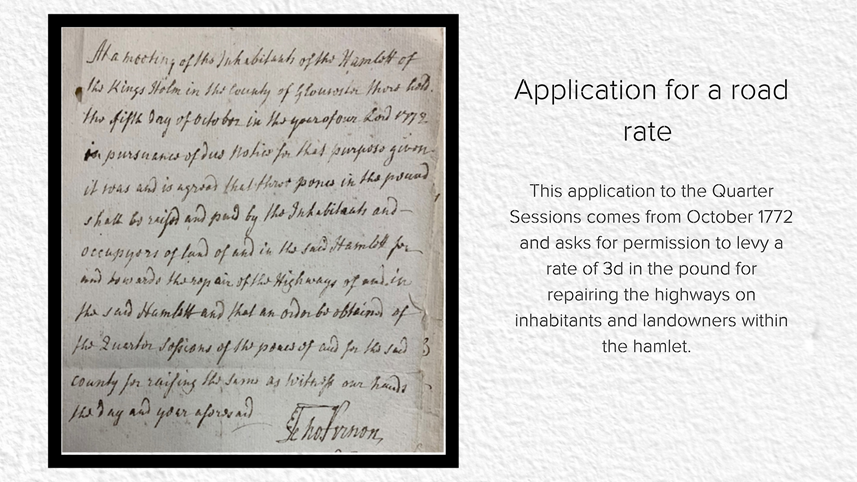 At a meeting of the Inhabitants of the Hamlett of
the Kings Holm in the County of Gloucester there held
the fifth day of October in the year of our Lord 1772
in pursuance of due Notice for that purpose given
it was and is agreed that three pence in the pound
shall be raised and paid by the Inhabitants and
occupyers of land of and in the said Hamlett for
and towards the repair of the Highways of and in
the said Hamlett and that an order be obtained of
the Quarter Sessions of the peace of and for the said
county for raising the same as witness our hands
the day and year aforesaid
Vernon
Application for a road
rate
This application to the Quarter
Sessions comes from October 1772
and asks for permission to levy a
rate of 3d in the pound for
repairing the highways on
inhabitants and landowners within
the hamlet.